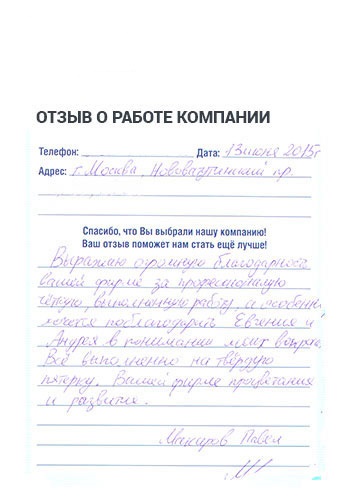 ОТЗЫВ О РАБОТЕ КОМПАНИИ
Телефон:
Дата: 13 июня 2015г
Адрес: г. Москва, Нововатутинский пр.
Спасибо, что Вы выбрали нашу компанию!
Ваш отзыв поможет нам стать ещё лучше!
Выражаю огромную благодарность
вашей фирме за профессиональную
чёткую, выполненную работу, и особенно
хочется поблагодарить Евгения и
Андрея в понимании моих
Всё выполнено на твёрдую
пятерку. Вашей фирме процветания
и развития.
Павел